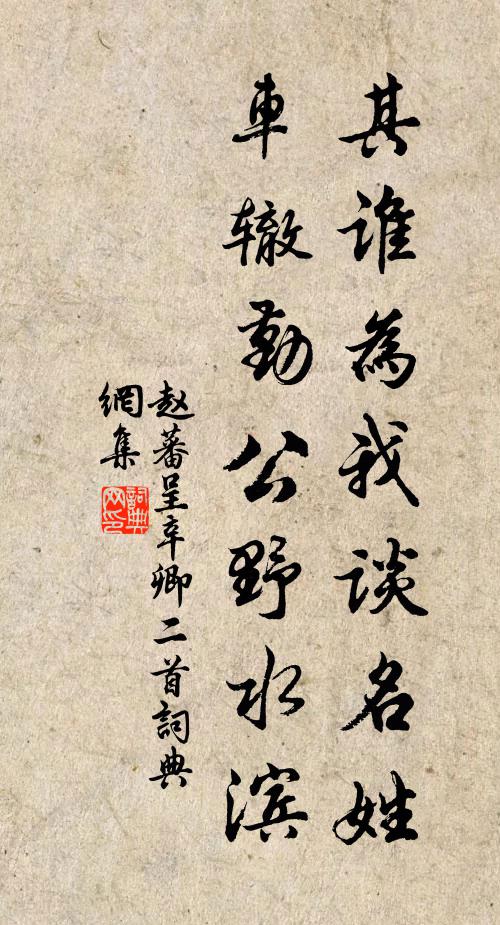 其谁為我談名姓
車辙勤公野水滨
赵蕃呈辛卿二首詞典
網集
詞典
网印